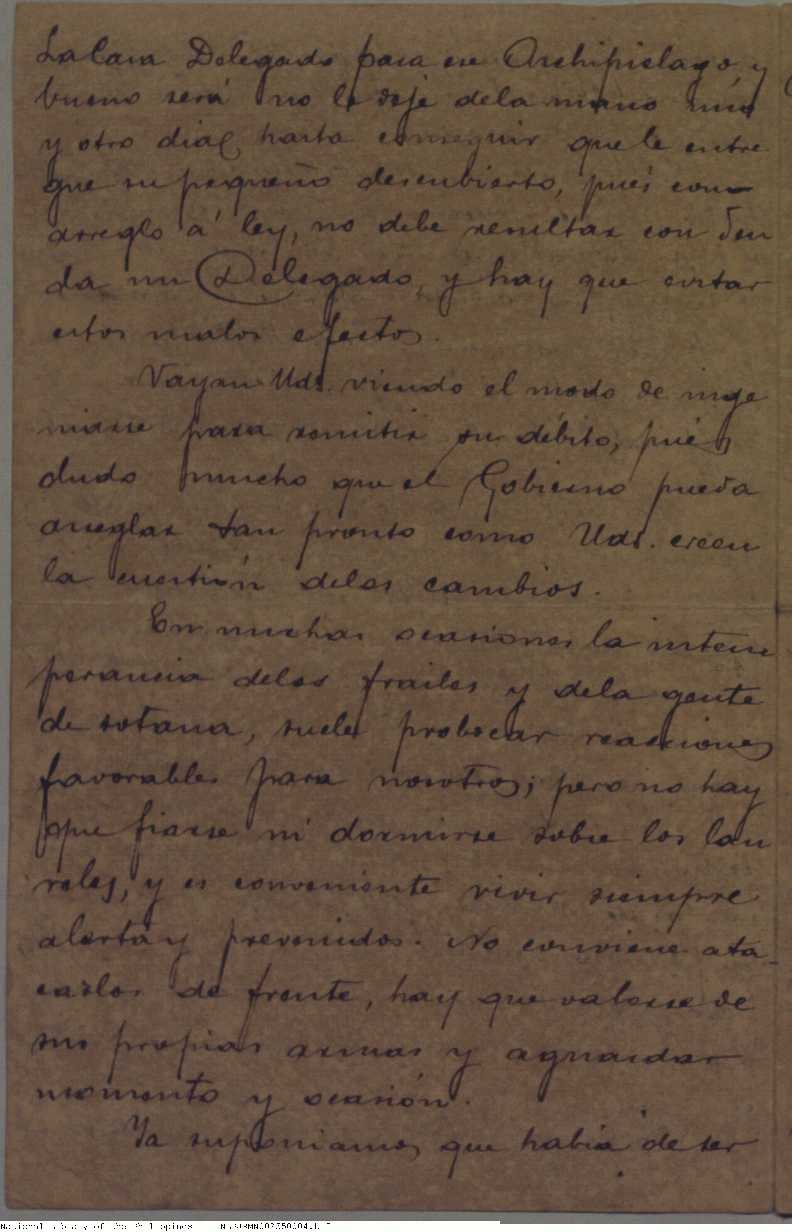 LaCara Delegado para ese Archipielago, y
bueno será no le deje dela mano uno
y otro dia, hasta conseguir que le entre
gue su pequeño descubierto, pués con
arreglo á ley, no debe resultar con deu
da un Delegado, y hay que evitar
estos malos efectos.
Vayan Uds. viendo el modo de inge
niarse para remitir su débito, pués
dudo mucho que el Gobierno pueda
arreglar tan pronto como Uds. creen
la cuestión delos cambios.
En muchas ocasiones la intem
perancia delos frailes y dela gente
de sotana, suele probocar reacciones
favorables para nosotros; pero no hay
que fiarse ni dormirse sobre los lau
reles, y es conveniente vivir siempre
alerta y prevenidos. No conviene ata-
carlos de frente, hay que valerse de
sus propias armas y aguardar
momento y ocasión.
Ya suponiamos que habia de ser
National Library of the Philippines